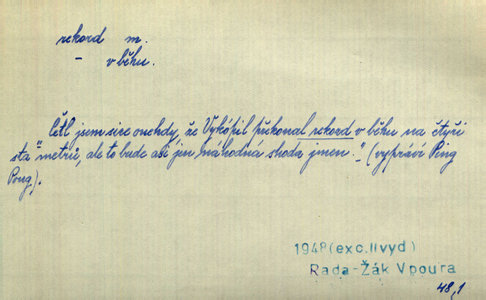 rekord m.
– v běhu.
Četl jsem sice onehdy, že Vykópil překonal rekord v běhu na čtyři
sta "metrů, ale to bude asi jen náhodná shoda jmen." (vypráví Ping
Pong).
1948 (exc. II vyd)
Rada-Žák Vpoura
48,1